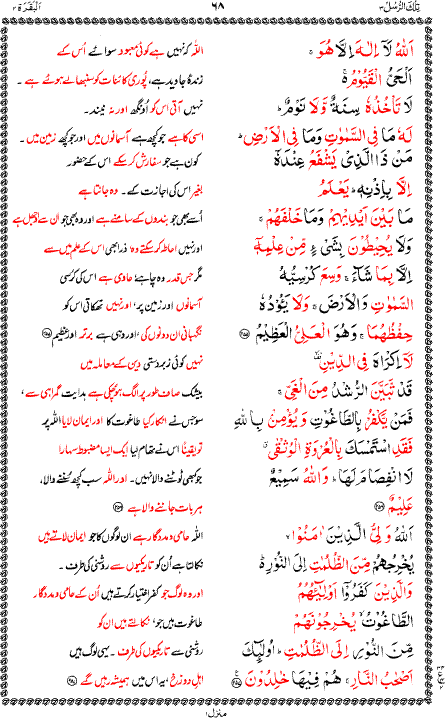 تِلْكَ الرُّسُلُ ٣ ٦٨ اَلْبَقَرَة ٢
اَللّٰهُ لَاۤ اِلٰهَ اِلَّا هُوَ ۚ اللہ کہ نہیں ہے کوئی معبود سوائے اُس کے
اَلْحَیُّ الْقَیُّوْمُ ۬ۚ زندۂ جاوید ہے، پوری کائنات کو سنبھالے ہوئے ہے
لَا تَاْخُذُهٗ سِنَةٌ وَّلَا نَوْمٌ ؕ نہیں آتی اس کو اُونگھ اور نہ نیند۔
لَهٗ مَا فِی السَّمٰوٰتِ وَمَا فِی الْاَرْضِ ؕ اسی کا ہے جو کچھ ہے آسمانوں میں اور جو کچھ زمین میں۔
مَنْ ذَا الَّذِیْ یَشْفَعُ عِنْدَهٗۤ کون ہے جو سفارش کر سکے اس کے حضور
اِلَّا بِاِذْنِهٖ ؕ یَعْلَمُ بغیر اس کی اجازت کے۔ وہ جانتا ہے
مَا بَیْنَ اَیْدِیْهِمْ وَمَا خَلْفَهُمْ ۚ اُسے بھی جو بندوں کے سامنے ہے اور وہ بھی جو ان سے اوجھل ہے
وَلَا یُحِیْطُوْنَ بِشَیْءٍ مِّنْ عِلْمِهٖۤ اور نہیں احاطہ کر سکتے وہ ذرا بھی اس کے علم میں سے
اِلَّا بِمَا شَآءَ ۚ وَسِعَ كُرْسِیُّهُ مگر جس قدر وہ چاہے حاوی ہے اس کی کرسی
السَّمٰوٰتِ وَالْاَرْضَ ۚ وَلَا یَـُٔوْدُهٗ آسمانوں اور زمین پر، اور نہیں تھکاتی اس کو
حِفْظُهُمَا ۚ وَهُوَ الْعَلِیُّ الْعَظِیْمُ ﴿۲۵۵﴾ نگہبانی ان دونوں کی، اور وہی ہے برتر اور عظیم ﴿۲۵۵﴾
لَاۤ اِكْرَاهَ فِی الدِّیْنِ ۙ۫ نہیں کوئی زبردستی دین کے معاملہ میں
قَدْ تَّبَیَّنَ الرُّشْدُ مِنَ الْغَیِّ ۚ بیشک صاف طور پر الگ ہو چکی ہے ہدایت گمراہی سے،
فَمَنْ یَّكْفُرْ بِالطَّاغُوْتِ وَیُؤْمِنْۢ بِاللّٰهِ سو جس نے انکار کیا طاغوت کا اور ایمان لایا اللہ پر
فَقَدِ اسْتَمْسَكَ بِالْعُرْوَةِ الْوُثْقٰی ۗ تو یقیناً اس نے تھام لیا ایک ایسا مضبوط سہارا
لَا انْفِصَامَ لَهَا ؕ وَاللّٰهُ سَمِیْعٌ جو کبھی ٹوٹنے والا نہیں۔ اور اللہ سب کچھ سُننے والا،
عَلِیْمٌ ﴿۲۵۶﴾ ہر بات جاننے والا ہے ﴿۲۵۶﴾
اَللّٰهُ وَلِیُّ الَّذِیْنَ اٰمَنُوْا ۙ اللہ حامی و مددگار ہے ان لوگوں کا جو ایمان لاتے ہیں
یُخْرِجُهُمْ مِّنَ الظُّلُمٰتِ اِلَی النُّوْرِ ؕ۬ نکالتا ہے اُن کو تاریکیوں سے روشنی کی طرف۔
وَالَّذِیْنَ كَفَرُوْۤا اَوْلِیٰٓـُٔهُمُ اور وہ لوگ جو کفر اختیار کرتے ہیں اُن کے حامی و مددگار
الطَّاغُوْتُ ۙ یُخْرِجُوْنَهُمْ طاغوت ہیں جو نکالتے ہیں ان کو
مِّنَ النُّوْرِ اِلَی الظُّلُمٰتِ ؕ اُولٰٓئِكَ روشنی سے تاریکیوں کی طرف۔ یہی لوگ ہیں
اَصْحٰبُ النَّارِ ۚ هُمْ فِیْهَا خٰلِدُوْنَ ﴿۲۵۷﴾ اہلِ دوزخ، یہ اس میں ہمیشہ رہیں گے ﴿۲۵۷﴾
منزل ۱